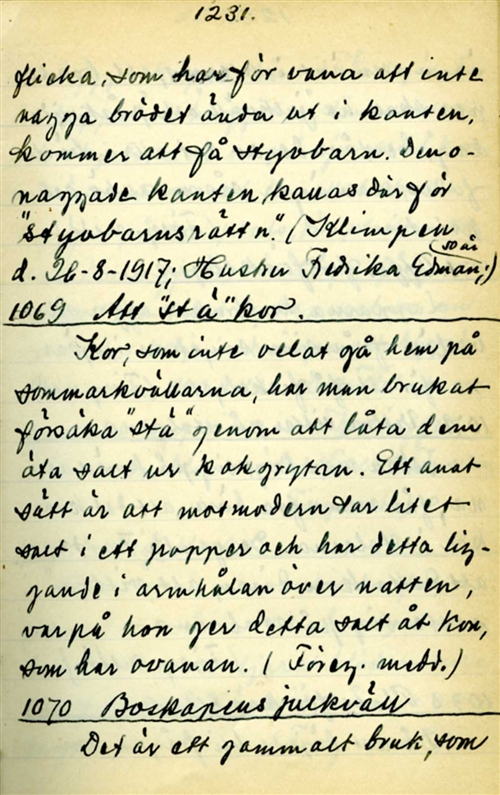 1231.
flicka, som har för vana att inte
nagga brödet ända ut i kanten,
kommer att få styvbarn. Den o-
naggade kanten kallas därför
"styvbarnsrätt'n". (Klimpen
50 år
d. 26-8-1917; Hustru Fredrika Edman;)
1069 Att "stå" kor.
Kor, som inte velat gå hem på
sommarkvällarna, har man brukat
försöka "stå" genom att låta dem
äta salt ur kokgrytan. Ett anat
sätt är att matmodern tar litet
salt i ett papper och har detta lig-
gande i armhålan över natten,
varpå hon ger detta salt åt kon,
som har ovanan. (Föreg. medd.)
1070 Boskapens julkväll
Det är ett gammalt bruk, som